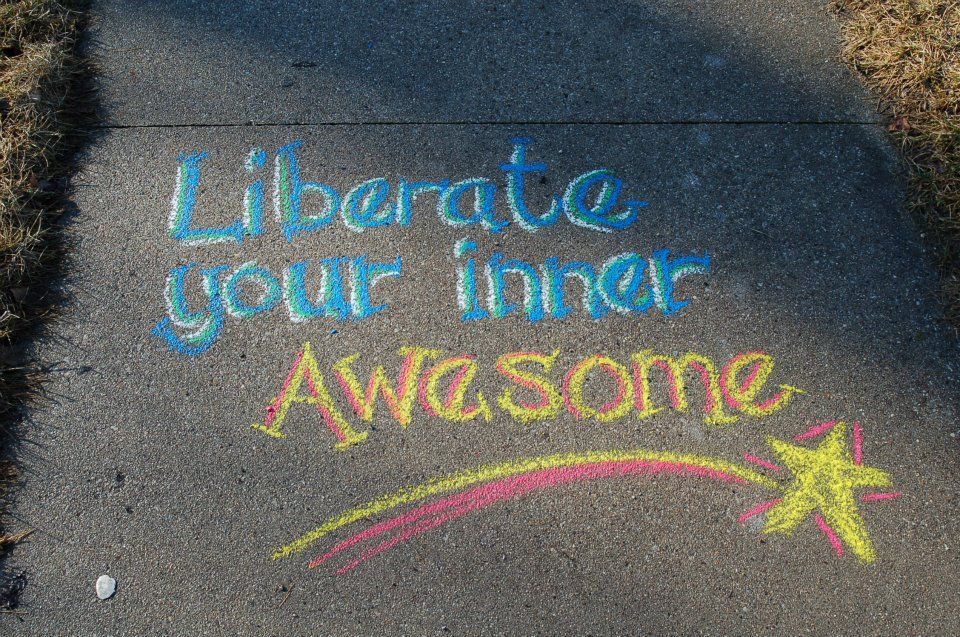 Liberate
your inner
Awesome